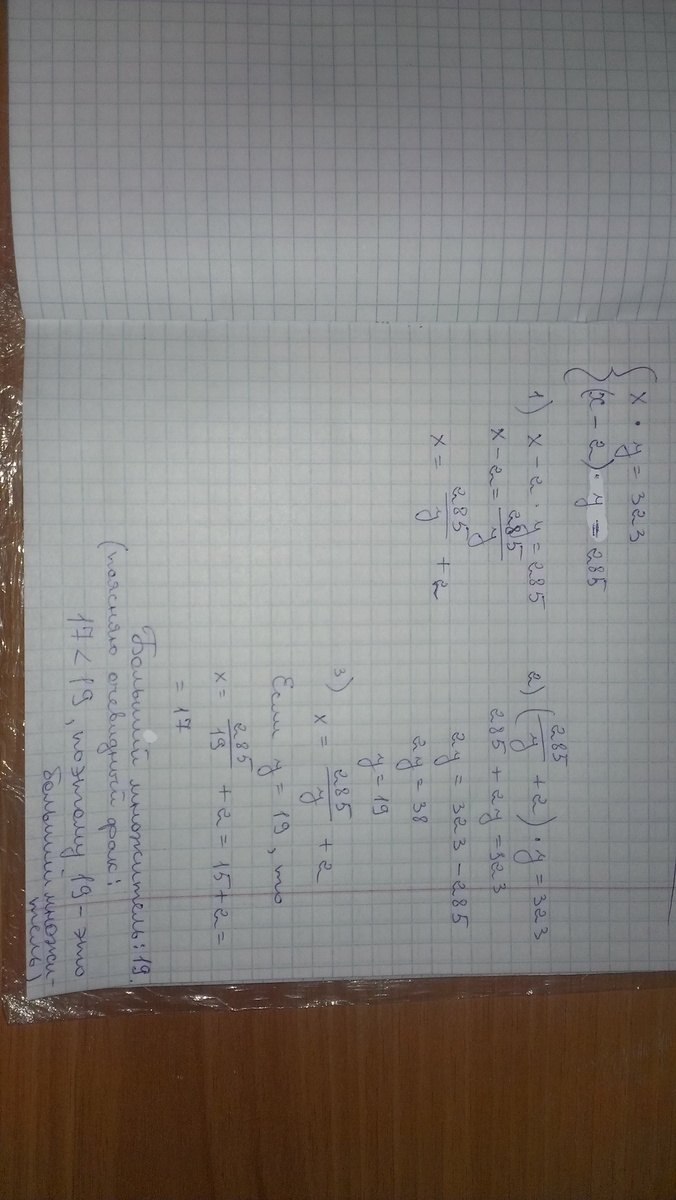 { x · y = 323
{ (x - 2) · y = 285
1) x - 2 · y = 285
x - 2 = 285/y
x = 285/y + 2
2) (285/y + 2) · y = 323
285 + 2y = 323
2y = 323 - 285
2y = 38
y = 19
3) x = 285/y + 2
Если y = 19, то
x = 285/19 + 2 = 15 + 2 =
= 17
Больший множитель: 19.
(поясняю очевидный факт:
17 < 19, поэтому 19 - это
больший множи-
тель)